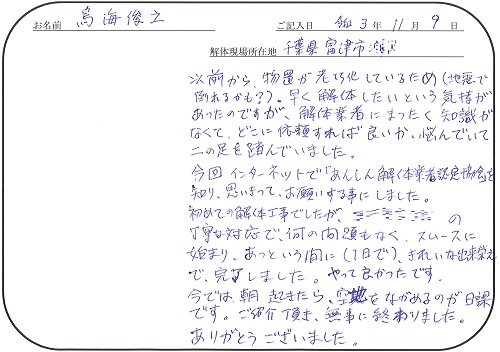 お名前 鳥海俊之 ご記入日 令和3年11月9日
解体現場所在地 千葉県富津市
以前から、物置が老朽化しているため(地震で
倒れるかも?)。早く解体したいという気持が
あったのですが、解体業者にまったく知識が
なくて、どこに依頼すれば良いか、悩んでいて
二の足を踏んでいました。
今回インターネットで「あんしん解体業者認定協会」を
知り、思いきって、お願いする事にしました。
初めての解体工事でしたが、 の
丁寧な対応で、何の問題もなく、スムースに
始まり、あっという間に(1日で)、きれいな出来栄え
で、完了しました。やって良かったです。
今では、朝起きたら、空地をながめるのが日課
です。ご紹介頂き、無事に終わりました。
ありがとうございました。